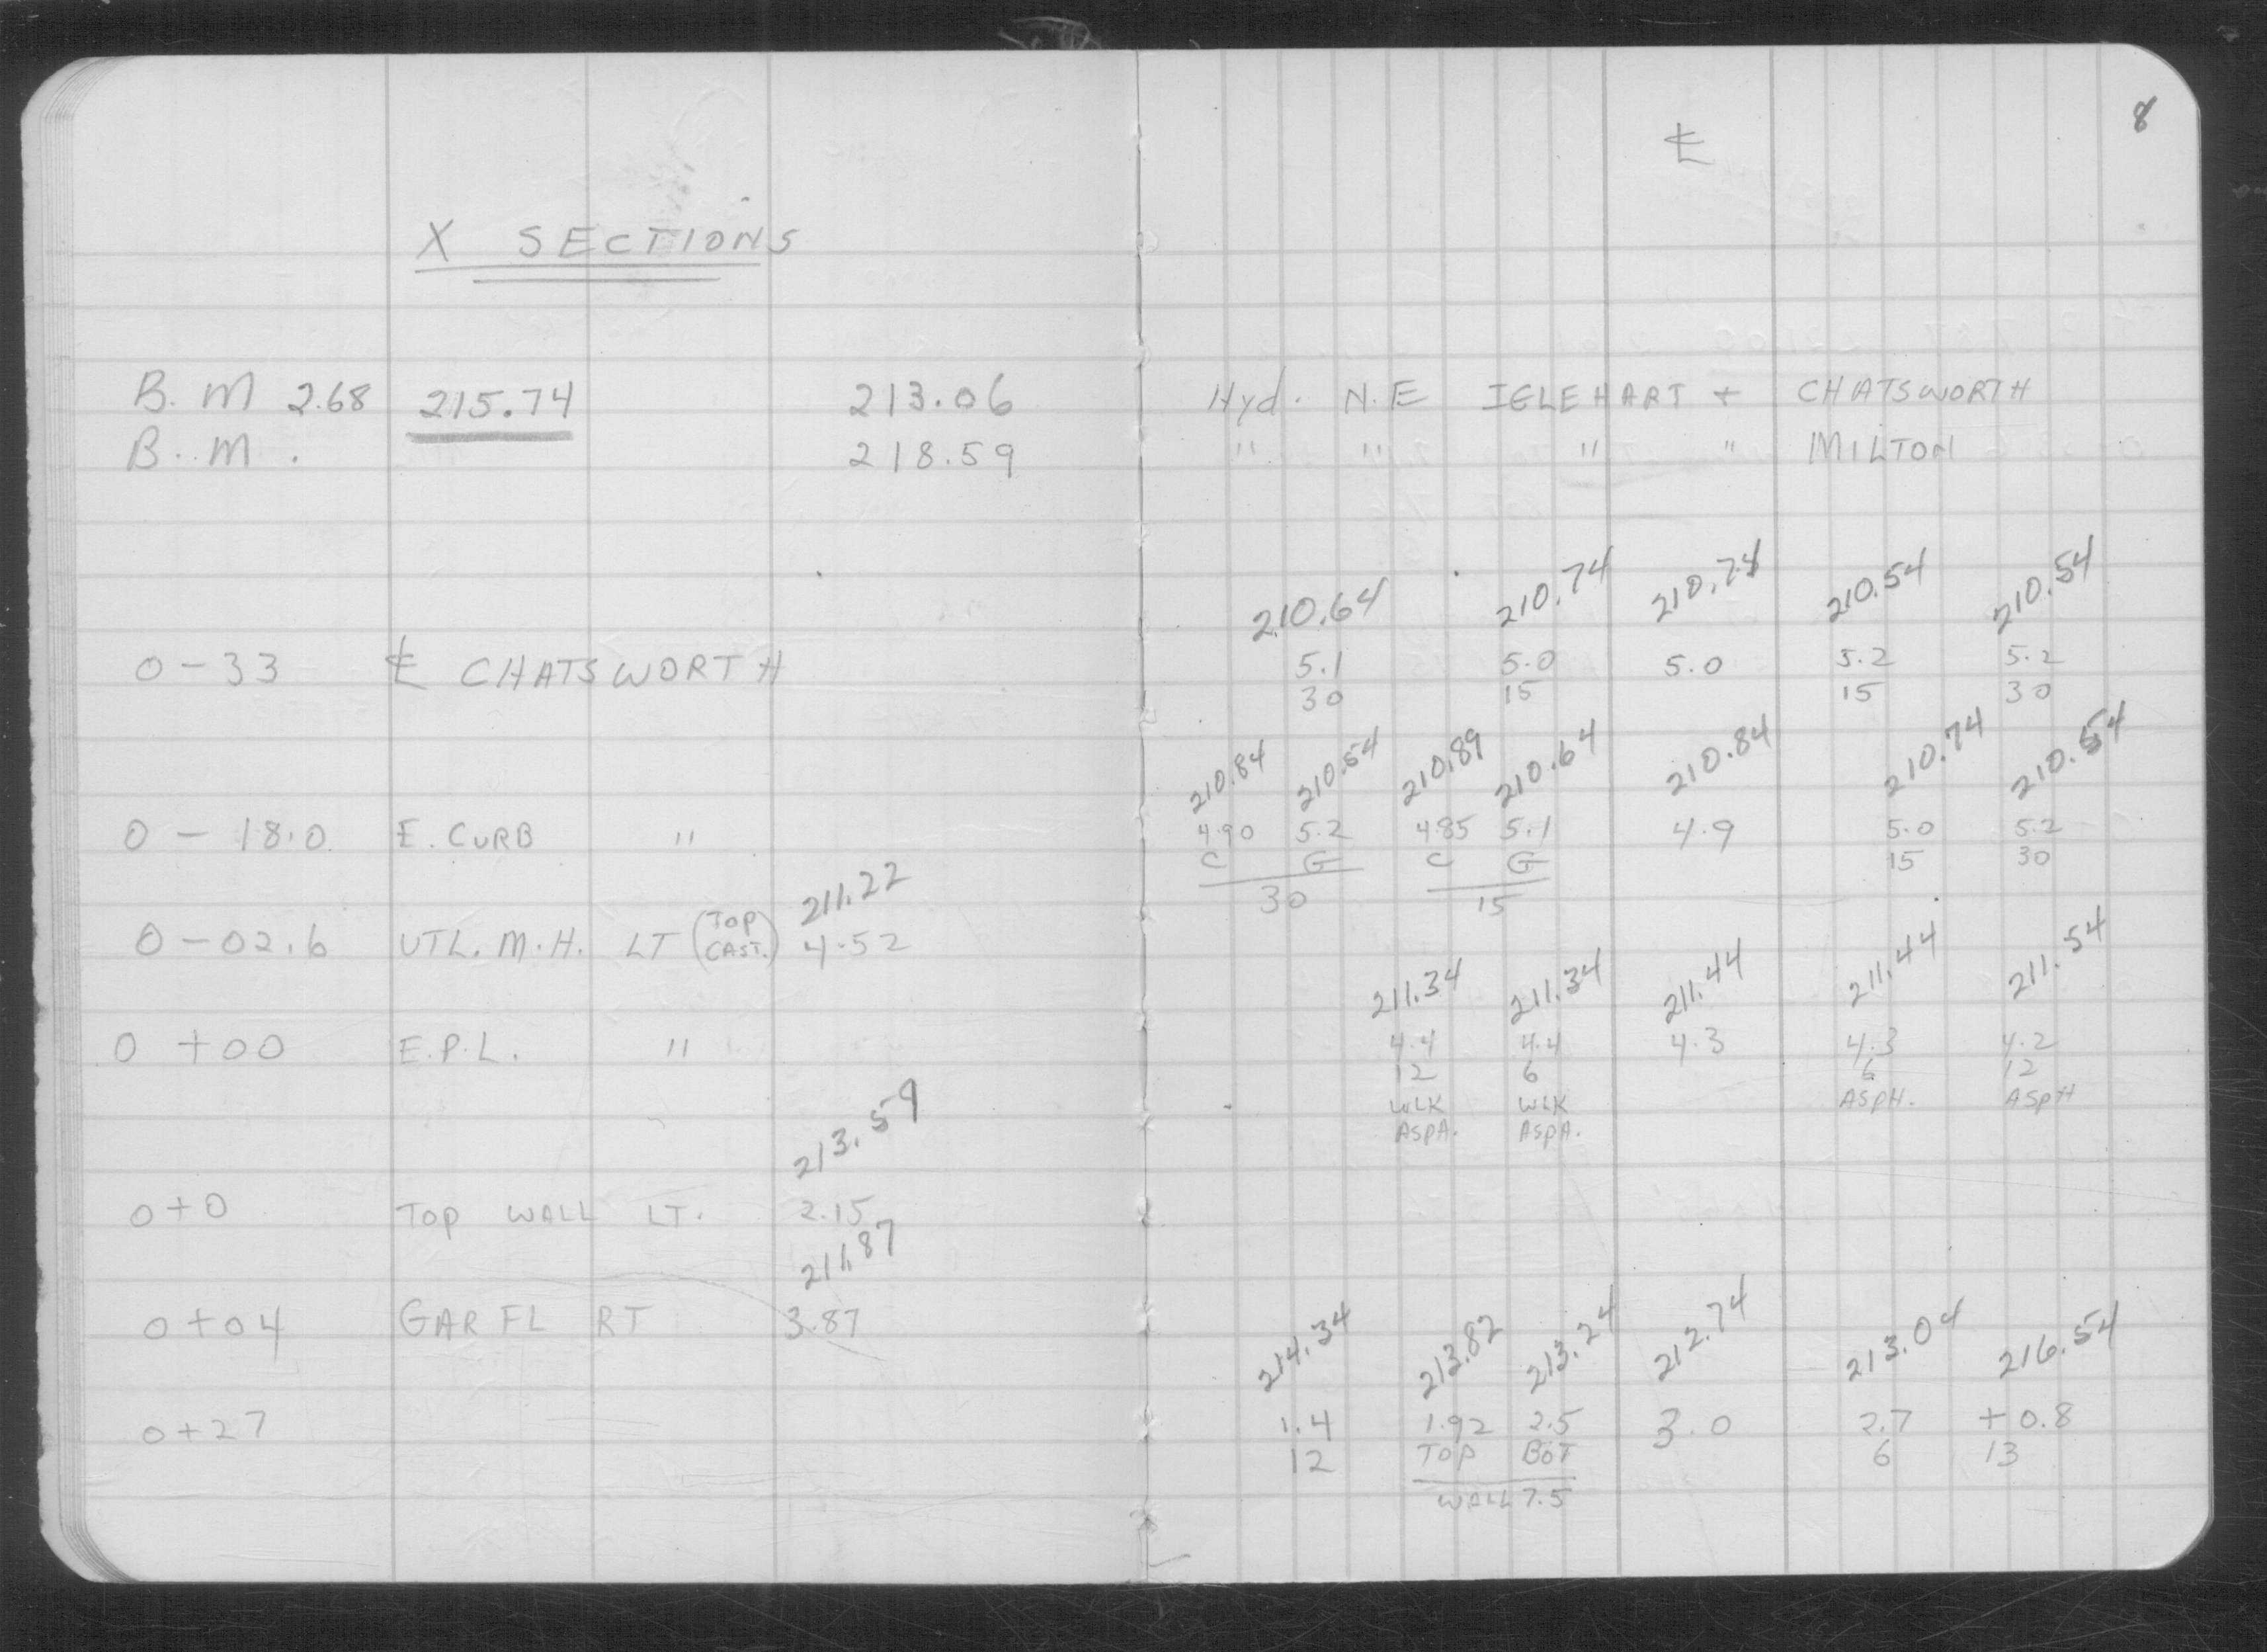 8
℄
X SECTIONS
B.M 2.68 215.74 213.06 Hyd. N.E IGLEHART + CHATSWORTH
B.M. 218.59 " " " " MILTON
210.64 210.74 210.74 210.54 210.54
0-33 ℄ CHATSWORTH 5.1 5.0 5.0 5.2 5.2
30 15 15 30
210.84 210.54 210.89 210.64 210.84 210.74 210.54
0-18.0 E. CURB " 4.90 5.2 4.85 5.1 4.9 5.0 5.2
C G C G 15 30
30 15
211.22
0-02.6 UTL. M.H. LT (TOP CAST.) 4.52
211.34 211.34 211.44 211.44 211.54
0+00 E.P.L. " 4.4 4.4 4.3 4.3 4.2
12 6 6 12
WLK WLK ASPH. ASPH
ASPA. ASPA.
213.59
0+0 TOP WALL LT. 2.15
211.87
0+04 GAR FL RT 3.87
214.34 213.82 213.24 212.74 213.04 216.54
0+27 1.4 1.92 2.5 3.0 2.7 +0.8
12 TOP BOT 6 13
WALL 7.5